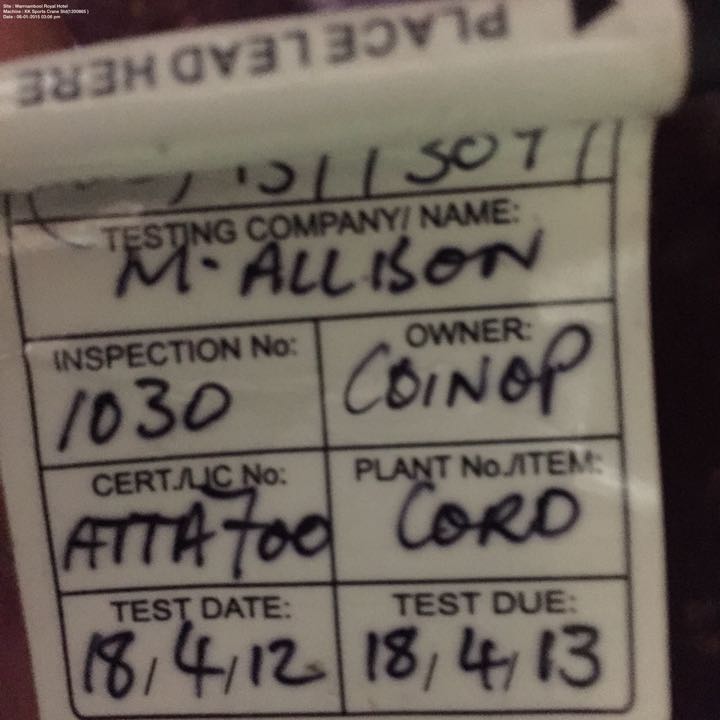 Site : Warrnambool Royal Hotel
Machine : KK Sports Crane Std(1200865 )
Date : 06-01-2015 03:06 pm
PLACE LEAD HERE
TESTING COMPANY/ NAME:
M. ALLISON
INSPECTION No:
1030
OWNER:
COINOP
CERT./LIC No:
ATTA700
PLANT No./ITEM:
CORD
TEST DATE:
18/4/12
TEST DUE:
18/4/13